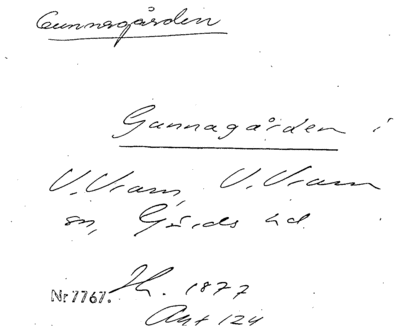 Gunnagården
Gunnagården i
V. Vram, V. Vram
sn, Gärds hd.
Nr 7767. Jk. 1877
Ant 124